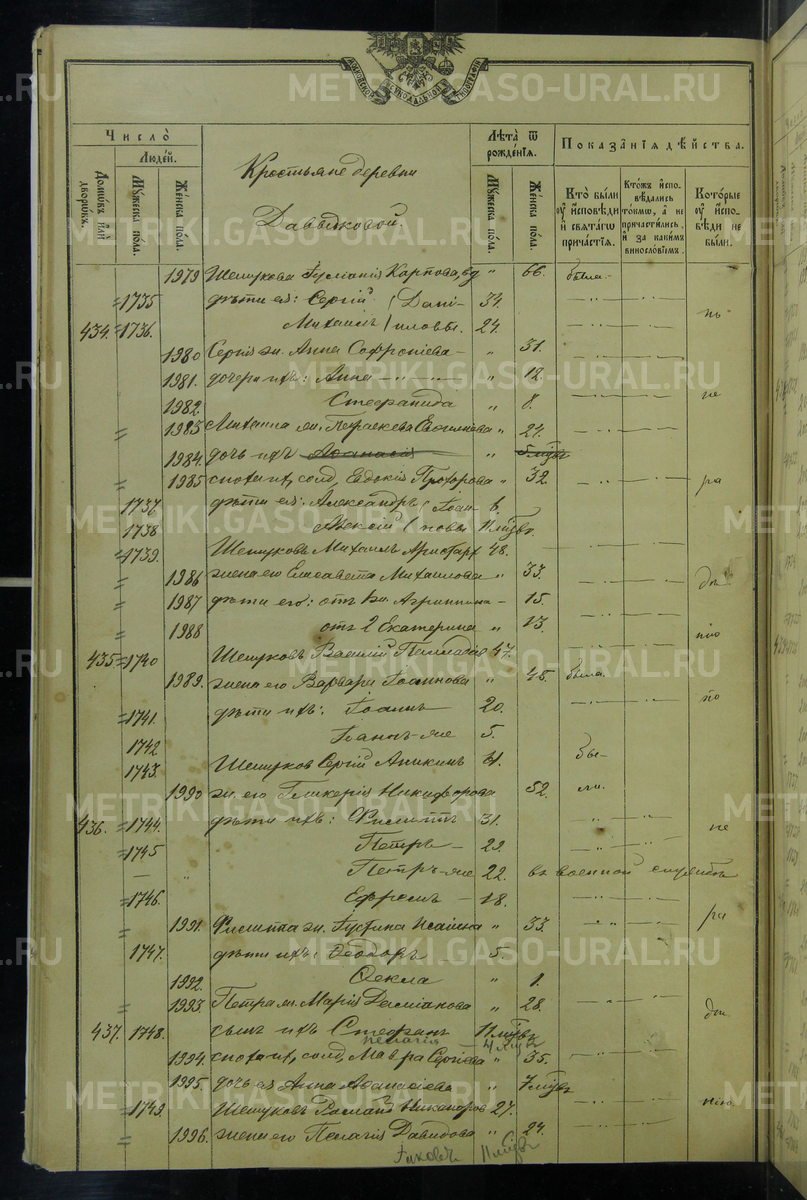 METRIKI.GASO-URAL.RU
МОСКОВСКОЙ СѴНОДАЛЬНОЙ ТИПОГРАФІИ
Число̀
Людей.
Домѡвъ или дворѡвъ.
Мꙋжеска пола.
Женска пола.
Крестьяне деревни
Давыдковой.
Лѣта ѿ рожденїѧ.
Мꙋжеска пола.
Женска пола.
Показанїѧ дѣйства.
Кто были оу исповѣди и свѧтагѡ причастїѧ.
Ктожъ исповѣдались токмѡ, а не причастились, и за какимъ винословїемъ.
Которые оу исповѣди не были.
1979 Шешукова Гусманія Карпова, вд „ 66. была
1735 дѣти ея: Сергій (Дани- 34.
434. 1736. Михаилъ (иловы. 24. нь
1980 Сергія ж. Анна Софроніева „ 31.
1981. дочери ихъ: Анна „ 12.
1982. Стефанида „ 8. не
1983 Михаила ж. Параскева Евгеніева „ 24.
1984. дочь ихъ Афанасія „ 5 мцвъ
1985 солд. Евдокія Прохорова „ 32 ра
1737 дѣти ея: Александръ (Іоан- 6.
1738 Алексій (новы 11 мцвъ.
1739. Шешуковъ Михаилъ Аристарх 48.
1986 жена его Елисавета Михаилова „ 33. дѣ
1987 дѣти его: отъ 1 ж. Агриппина 15.
1988 отъ 2 Екатерина „ 13. нію
435 1740 Шешуковъ Василій Палладіев 47.
1989. жена его Варвара Іоаннова „ 45. была
1741. дѣти ихъ: Іоаннъ 20. по
1742 Іоаннъ-же 5.
1743. Шешуков Сергій Аникинъ 41. бы-
1990 ж. его Гликерія Никифорова 52. ли
436. 1744. дѣти ихъ: Филиппъ 31. не
1745 Петръ 29.
— „ Петръ-же 22. въ военной службѣ
1746. Ефремъ 18.
1991 Филиппа ж. Іустина Исаіина „ 33. ра
1747. дѣти ихъ: Ѳеодоръ 5.
1992. Ѳекла „ 1.
1993. Петра ж. Марія Даміанова „ 28. дѣ
437. 1748. сынъ ихъ Стефанъ 11 мцвъ
Пелагія 4 мцвъ
1994. солд. Мавра Сергіева „ 35.
1995. дочь ея Анна Афанасіева „ 7 мцвъ
1749. Шешуковъ Никаноров 27. нію.
1996. жена его Пелагія Давидова „ 24.
Іаковъ 11 мцвъ